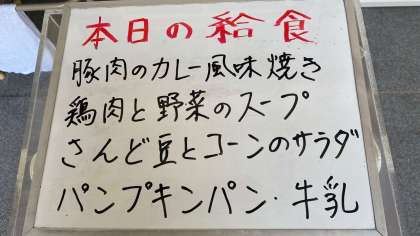 本日の給食
豚肉のカレー風味焼き
鶏肉と野菜のスープ
さんど豆とコーンのサラダ
パンプキンパン・牛乳